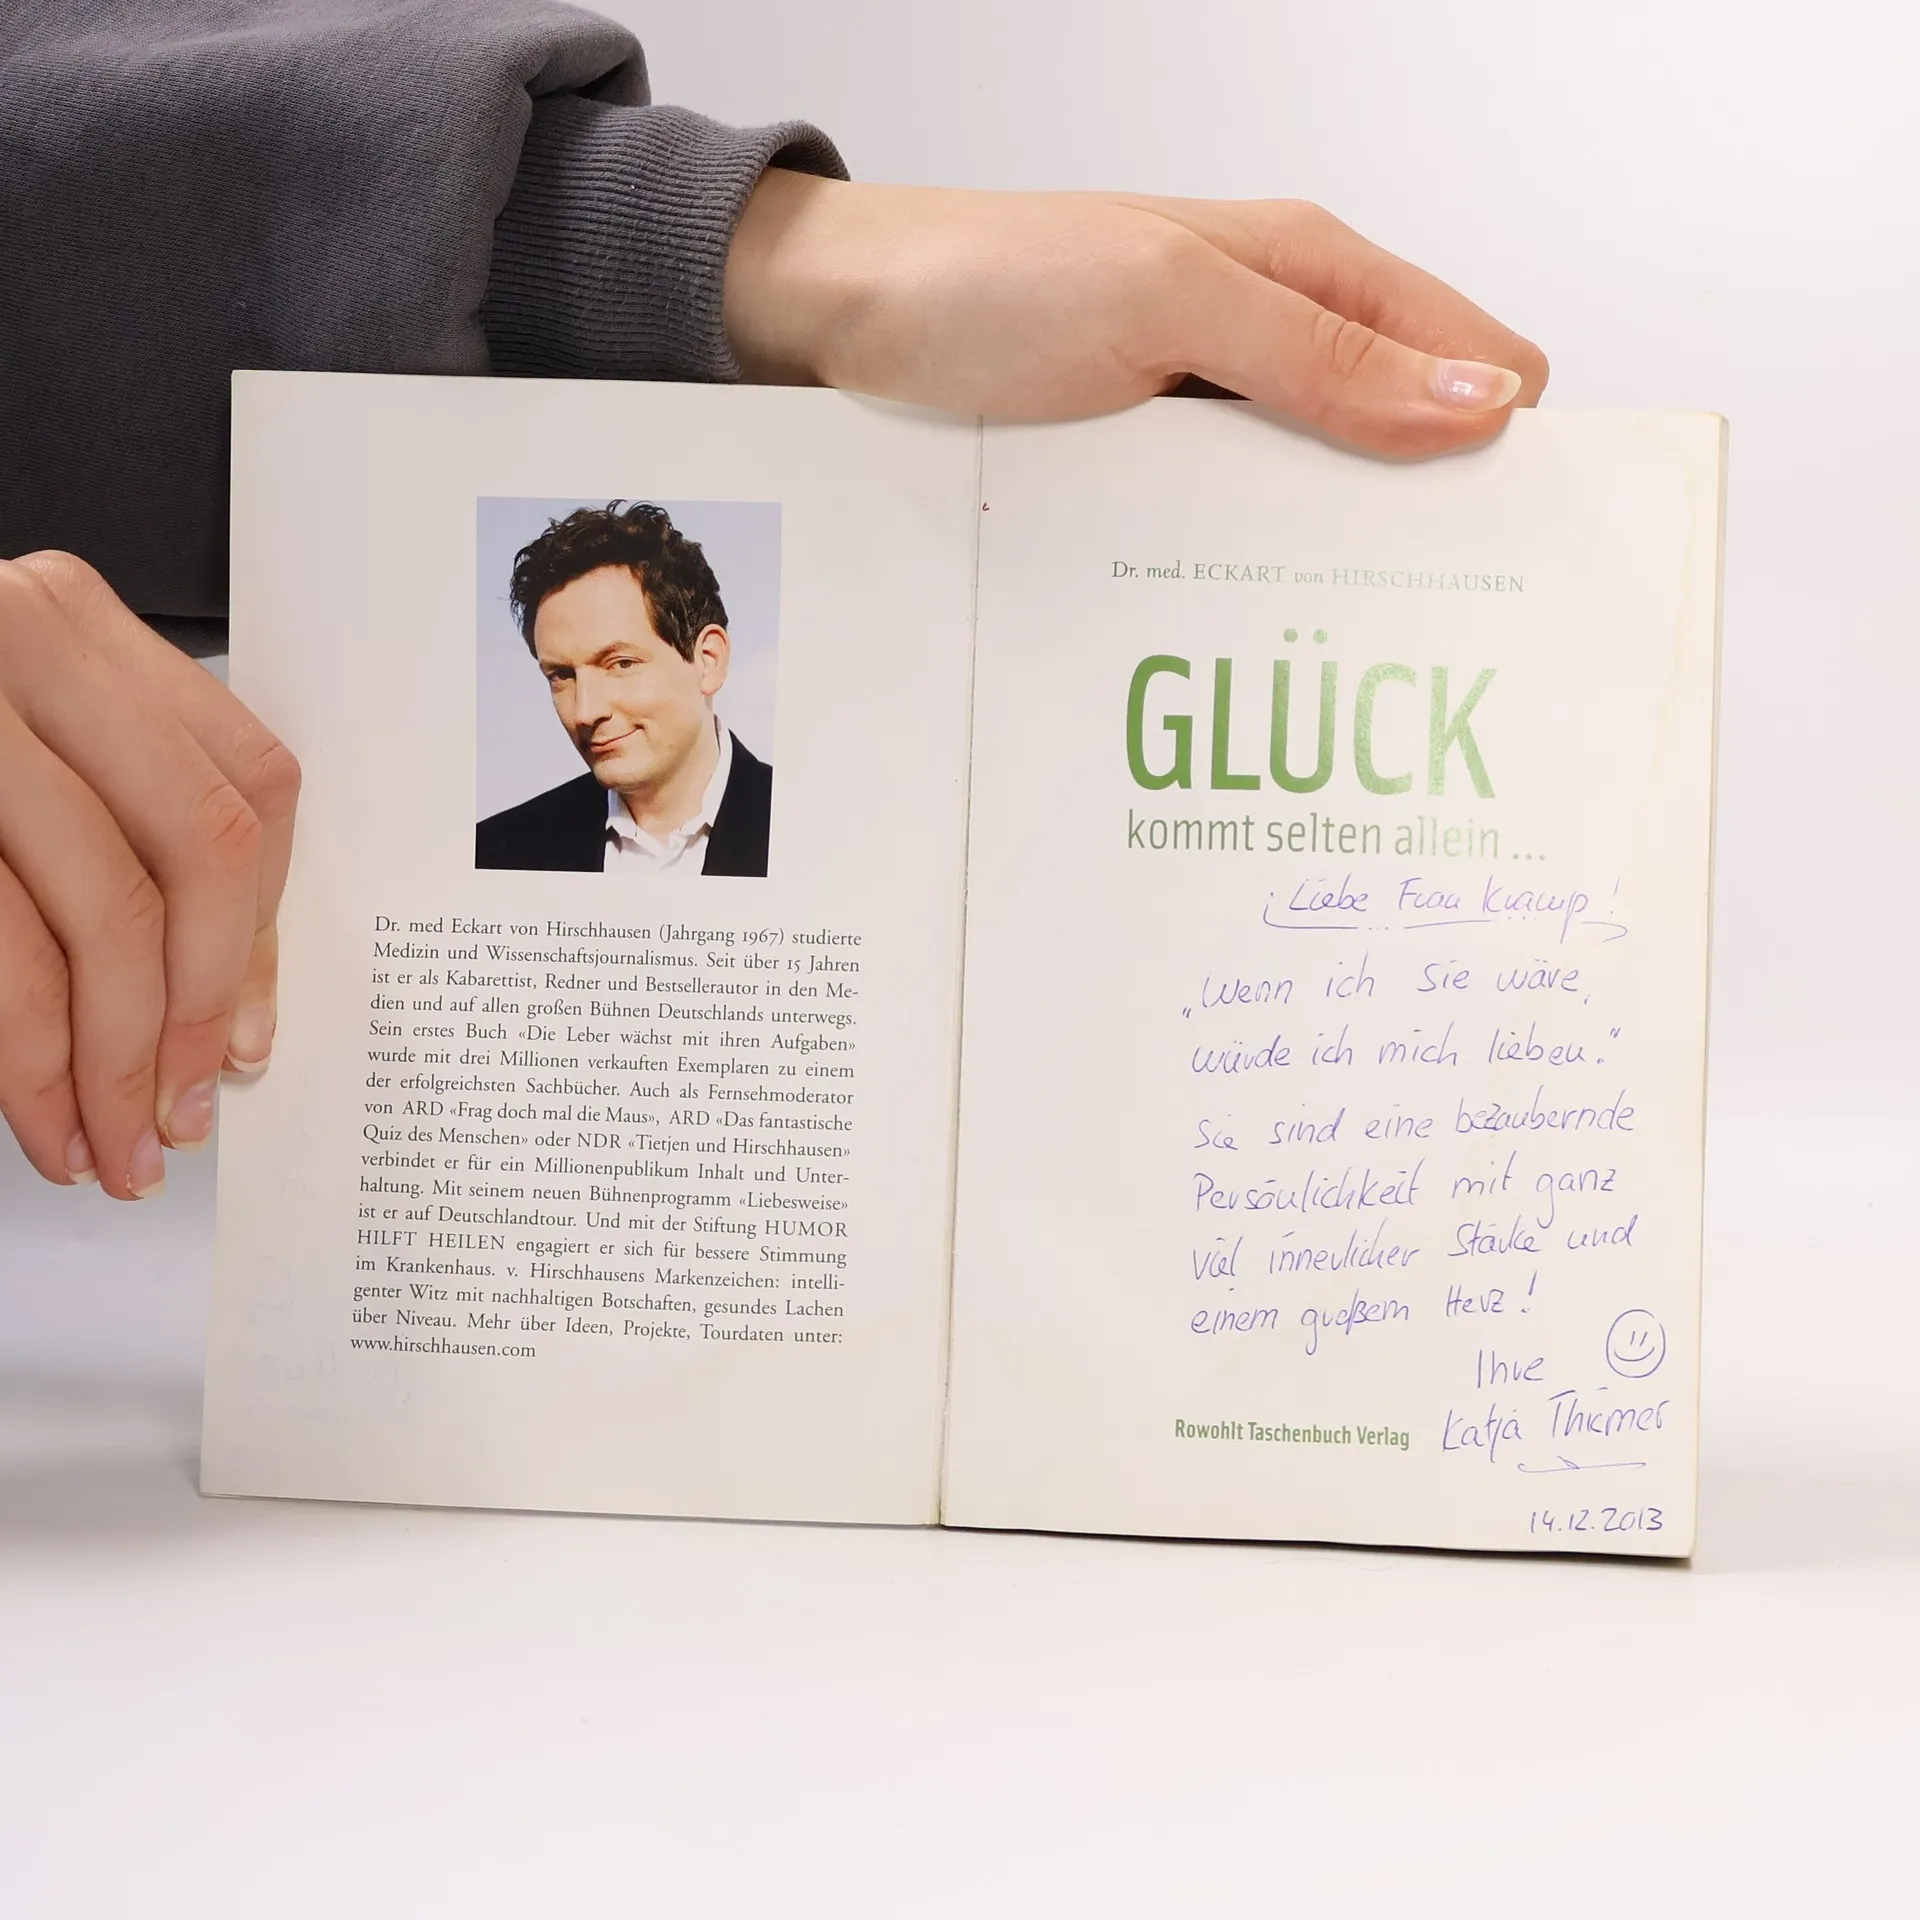 Dr. med Eckart von Hirschhausen (Jahrgang 1967) studierte
Medizin und Wissenschaftsjournalismus. Seit über 15 Jahren
ist er als Kabarettist, Redner und Bestsellerautor in den Me-
dien und auf allen großen Bühnen Deutschlands unterwegs.
Sein erstes Buch «Die Leber wächst mit ihren Aufgaben»
wurde mit drei Millionen verkauften Exemplaren zu einem
der erfolgreichsten Sachbücher. Auch als Fernsehmoderator
von ARD «Frag doch mal die Maus», ARD «Das fantastische
Quiz des Menschen» oder NDR «Tietjen und Hirschhausen»
verbindet er für ein Millionenpublikum Inhalt und Unter-
haltung. Mit seinem neuen Bühnenprogramm «Liebesweise»
ist er auf Deutschlandtour. Und mit der Stiftung HUMOR
HILFT HEILEN engagiert er sich für bessere Stimmung
im Krankenhaus. v. Hirschhausens Markenzeichen: intelli-
genter Witz mit nachhaltigen Botschaften, gesundes Lachen
über Niveau. Mehr über Ideen, Projekte, Tourdaten unter:
www.hirschhausen.com
Dr. med. ECKART von HIRSCHHAUSEN
GLÜCK
kommt selten allein ...
Liebe Frau Kramp!
„Wenn ich Sie wäre,
würde ich mich lieben."
Sie sind eine bezaubernde
Persönlichkeit mit ganz
viel innerlicher Stärke und
einem großem Herz!
Ihre
Katja Thiemer
Rowohlt Taschenbuch Verlag
14.12.2013